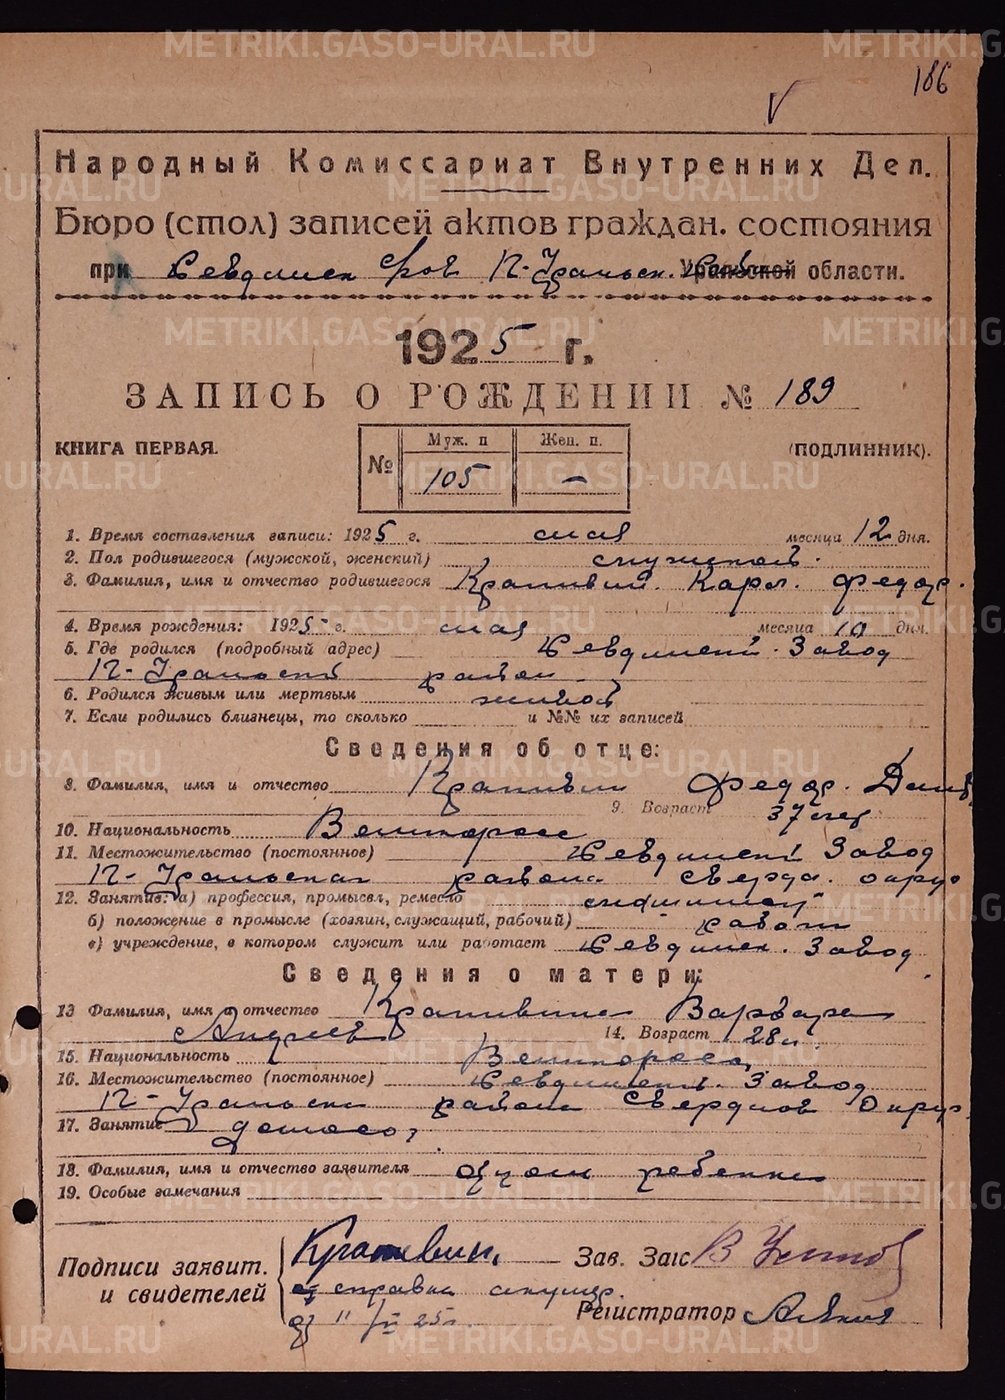 186
Народный Комиссариат Внутренних Дел.
Бюро (стол) записей актов граждан. состояния
при П-Уральск. Уральской области.
1925 г.
ЗАПИСЬ О РОЖДЕНИИ № 189
КНИГА ПЕРВАЯ.
№ Муж. п Жен. п.
105 —
(ПОДЛИННИК).
1. Время составления записи: 1925 г. мая месяца 12 дня.
2. Пол родившегося (мужской, женский) мужской.
3. Фамилия, имя и отчество родившегося Крапивин. Карл. Федор.
4. Время рождения: 1925 г. мая месяца 10 дня.
5. Где родился (подробный адрес) Ревдинский. Завод
П-Уральский район.
6. Родился живым или мертвым живой
7. Если родились близнецы, то сколько и №№ их записей
Сведения об отце:
8. Фамилия, имя и отчество Крапивин Федор.
9. Возраст 37 лет
10. Национальность Великоросс
11. Местожительство (постоянное) Ревдинский Завод
П-Уральского района Свердл. округ
12. Занятия: а) профессия, промысел, ремесло
б) положение в промысле (хозяин, служащий, рабочий)
в) учреждение, в котором служит или работает Ревдинск. Завод
Сведения о матери:
13 Фамилия, имя и отчество Крапивина Варвара
Андреев 14. Возраст 28 л.
15. Национальность Великоросса
16. Местожительство (постоянное) Ревдинский. Завод
П-Уральск района Свердлов Округ
17. Занятие домохоз.
18. Фамилия, имя и отчество заявителя отец ребенка
19. Особые замечания
Подписи заявит. и свидетелей
Крапивин
справка акушер.
25 г.
Зав. Загс
Регистратор
METRIKI.GASO-URAL.RU